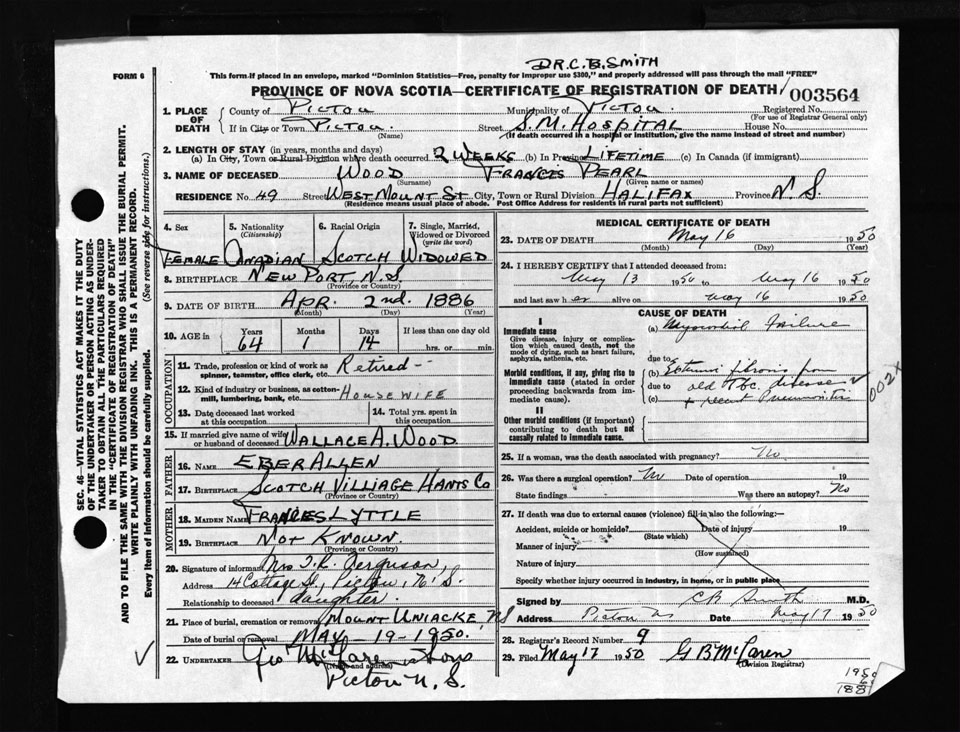 DR. C. B. SMITH
FORM 6
This form if placed in an envelope, marked "Dominion Statistics—Free, penalty for improper use $300," and properly addressed will pass through the mail "FREE"
PROVINCE OF NOVA SCOTIA—CERTIFICATE OF REGISTRATION OF DEATH 003564
1. PLACE OF DEATH County of Pictou Municipality of Pictou. Registered No.
(For use of Registrar General only)
If in City or Town Pictou. (Name) Street S. M. HOSPITAL House No.
(If death occurred in a hospital or institution, give the name instead of street and number)
2. LENGTH OF STAY (in years, months and days)
(a) In City, Town or Rural Division where death occurred 2 WEEKS (b) In Province LIFETIME (c) In Canada (if immigrant)
3. NAME OF DECEASED WOOD (Surname) FRANCIS PEARL (Given name or names)
RESIDENCE No. 49 Street WEST MOUNT ST City, Town or Rural Division HALIFAX Province N. S.
(Residence means usual place of abode. Post Office Address for residents in rural parts not sufficient)
4. Sex 5. Nationality (Citizenship) 6. Racial Origin 7. Single, Married, Widowed or Divorced (write the word)
FEMALE CANADIAN SCOTCH WIDOWED
8. BIRTHPLACE NEW PORT N.S
(Province or Country)
9. DATE OF BIRTH APR. 2nd. 1886
(Month) (Day) (Year)
10. AGE in Years Months Days If less than one day old
64 1 14 hrs. or min.
OCCUPATION
11. Trade, profession or kind of work as spinner, teamster, office clerk, etc. Retired -
12. Kind of industry or business, as cotton-mill, lumbering, bank, etc. HOUSEWIFE
13. Date deceased last worked at this occupation 14. Total yrs. spent in this occupation
15. If married give name of wife or husband of deceased WALLACE A. WOOD
FATHER
16. NAME EBER ALLEN
17. BIRTHPLACE SCOTCH VILLIAGE HANTS CO
(Province or Country)
MOTHER
18. MAIDEN NAME FRANCES LYTTLE
19. BIRTHPLACE NOT KNOWN.
(Province or Country)
20. Signature of informant Mrs T. R. Ferguson,
Address 14 Cottage St., Pictou, N. S.
Relationship to deceased daughter.
21. Place of burial, cremation or removal MOUNT UNIACKE, NS
Date of burial or removal MAY-19-1950.
22. UNDERTAKER Geo McLaren & Sons
(Name and address)
Pictou N. S.
MEDICAL CERTIFICATE OF DEATH
23. DATE OF DEATH May 16 1950
(Month) (Day) (Year)
24. I HEREBY CERTIFY that I attended deceased from:
May 13 1950 to May 16 1950
and last saw her alive on May 16 1950
CAUSE OF DEATH
I
Immediate cause (a) Myocardial Failure
Give disease, injury or complication which caused death, not the mode of dying, such as heart failure, asphyxia, asthenia, etc.
due to
Morbid conditions, if any, giving rise to immediate cause (stated in order proceeding backwards from immediate).
(b) Extensive fibrosis from
due to old Tbc. disease
(c) + recent Pneumonitis
002X
II
Other morbid conditions (if important) contributing to death but not causally related to immediate cause.
25. If a woman, was the death associated with pregnancy? No.
26. Was there a surgical operation? No Date of operation 19
State findings Was there an autopsy? No
27. If death was due to external causes (violence) fill in also the following:—
Accident, suicide or homicide? Date of injury 19
(State which)
Manner of injury
(How sustained)
Nature of injury
Specify whether injury occurred in industry, in home, or in public place
Signed by C B Smith M.D.
Address Pictou NS Date May 17 1950
28. Registrar's Record Number 9
29. Filed May 17 1950 G B McLaren
(Division Registrar)
1950
188
SEC. 46—VITAL STATISTICS ACT MAKES IT THE DUTY
OF THE UNDERTAKER OR PERSON ACTING AS UNDER-
TAKER TO OBTAIN ALL THE PARTICULARS REQUIRED
IN THE "CERTIFICATE OF REGISTRATION OF DEATH"
AND TO FILE THE SAME WITH THE DIVISION REGISTRAR WHO SHALL ISSUE THE BURIAL PERMIT.
WRITE PLAINLY WITH UNFADING INK. THIS IS A PERMANENT RECORD.
Every item of information should be carefully supplied. (See reverse side for instructions.)